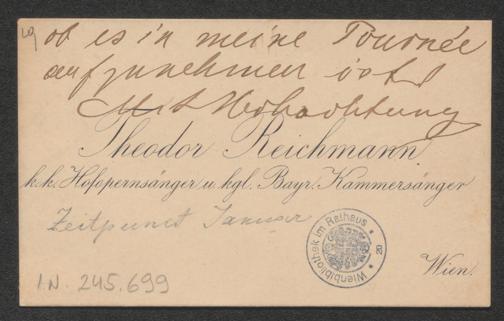 ob es in meine Tournée
aufzunehmen ist
Mit Hochachtung
Theodor Reichmann
k.k. Hofopernsänger u. kgl. Bayr. Kammersänger
Zeitpunct Januar
Wienbibliothek im Rathaus
20
Wien.
I.N. 245.699